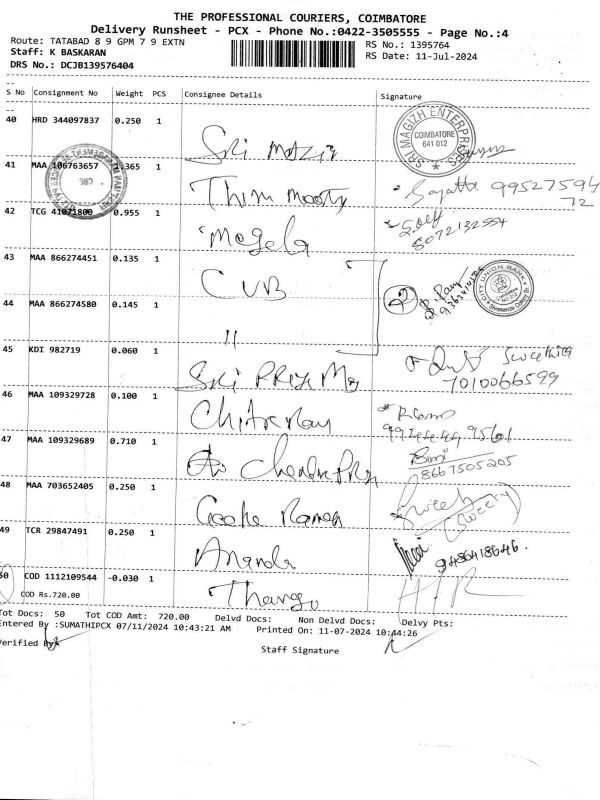 THE PROFESSIONAL COURIERS, COIMBATORE
Delivery Runsheet - PCX - Phone No.:0422-3505555 - Page No.:4
Route: TATABAD 8 9 GPM 7 9 EXTN
RS No.: 1395764
Staff: K BASKARAN
RS Date: 11-Jul-2024
DRS No.: DCJB139576404
S No Consignment No Weight PCS Consignee Details Signature
40 HRD 344097837 0.250 1
SRI MAGIZH ENTERPRISES
COIMBATORE
641 012
Sri
41 MAA 106763657 1.365 1
Thiru Moorty
9952759472
42 TCG 41071800 0.955 1
8072132554
43 MAA 866274451 0.135 1 CUB
CITY UNION BANK
44 MAA 866274580 0.145 1 "
45 KDI 982719 0.060 1
Sri Priya
7010066599
46 MAA 109329728 0.100 1
47 MAA 109329689 0.710 1
8667505205
48 MAA 703652405 0.250 1
Raman
(Sweety)
49 TCR 29847491 0.250 1
Ananda
9486418646.
50 COD 1112109544 -0.030 1
COD Rs.720.00
Tot Docs: 50 Tot COD Amt: 720.00 Delvd Docs: Non Delvd Docs: Delvy Pts:
Entered By :SUMATHIPCX 07/11/2024 10:43:21 AM Printed On: 11-07-2024 10:44:26
Verified By
Staff Signature